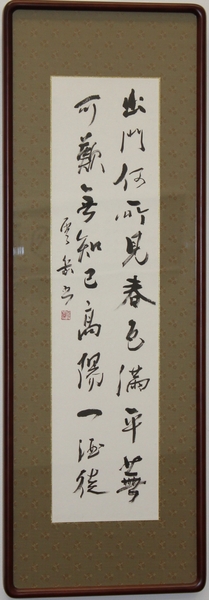 出門何所見春色滿平蕪
可歎無知己高陽一酒徒